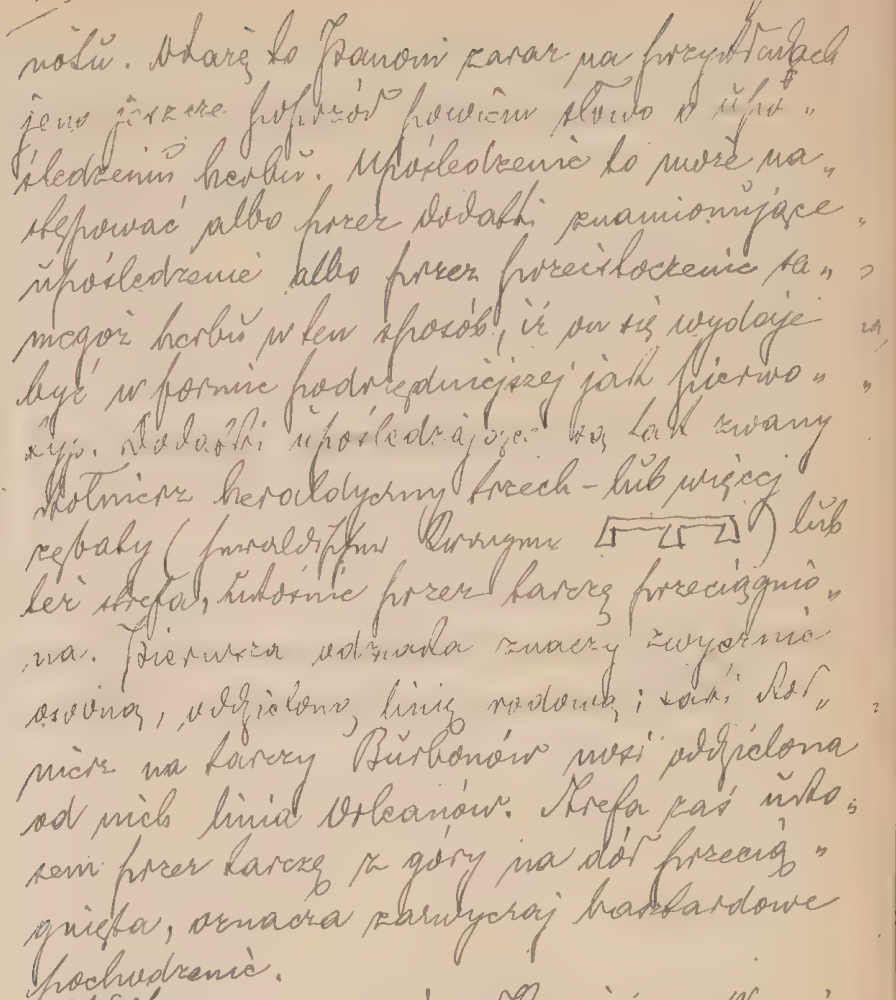 nošu. Okażę to Panom zaraz na przykładach
jeno jeszcze poprzód powiem słowo o upo„
śledzeniu herbu. Upośledzenie to może na„
stępować albo przez dodatki znamionujące
upośledzenie albo przez przeistoczenie sa„
megoż herbu w ten sposób, iż on się wydaje
być w formie podrzędniejszej jak pierwo„
typ. Dodatki upośledzające są tak zwany
kołnierz heraldyczny trzech – lub więcej
zębaty ( heraldischer Kragen ) lub
też strefa, ukośnie przez tarczę przeciągnio„
na. Pierwsza odznaka znaczy zwyczaj­nie
osobną, oddzieloną linię rodową; taki koł„
nierz na tarczy Burbonów nosi oddzielona
od nich linia Orleanów. Strefa zaś uko„
sem przez tarczę z góry na dół przecią„
gnięta, oznacza zazwyczaj bastardowe
pochodzenie.